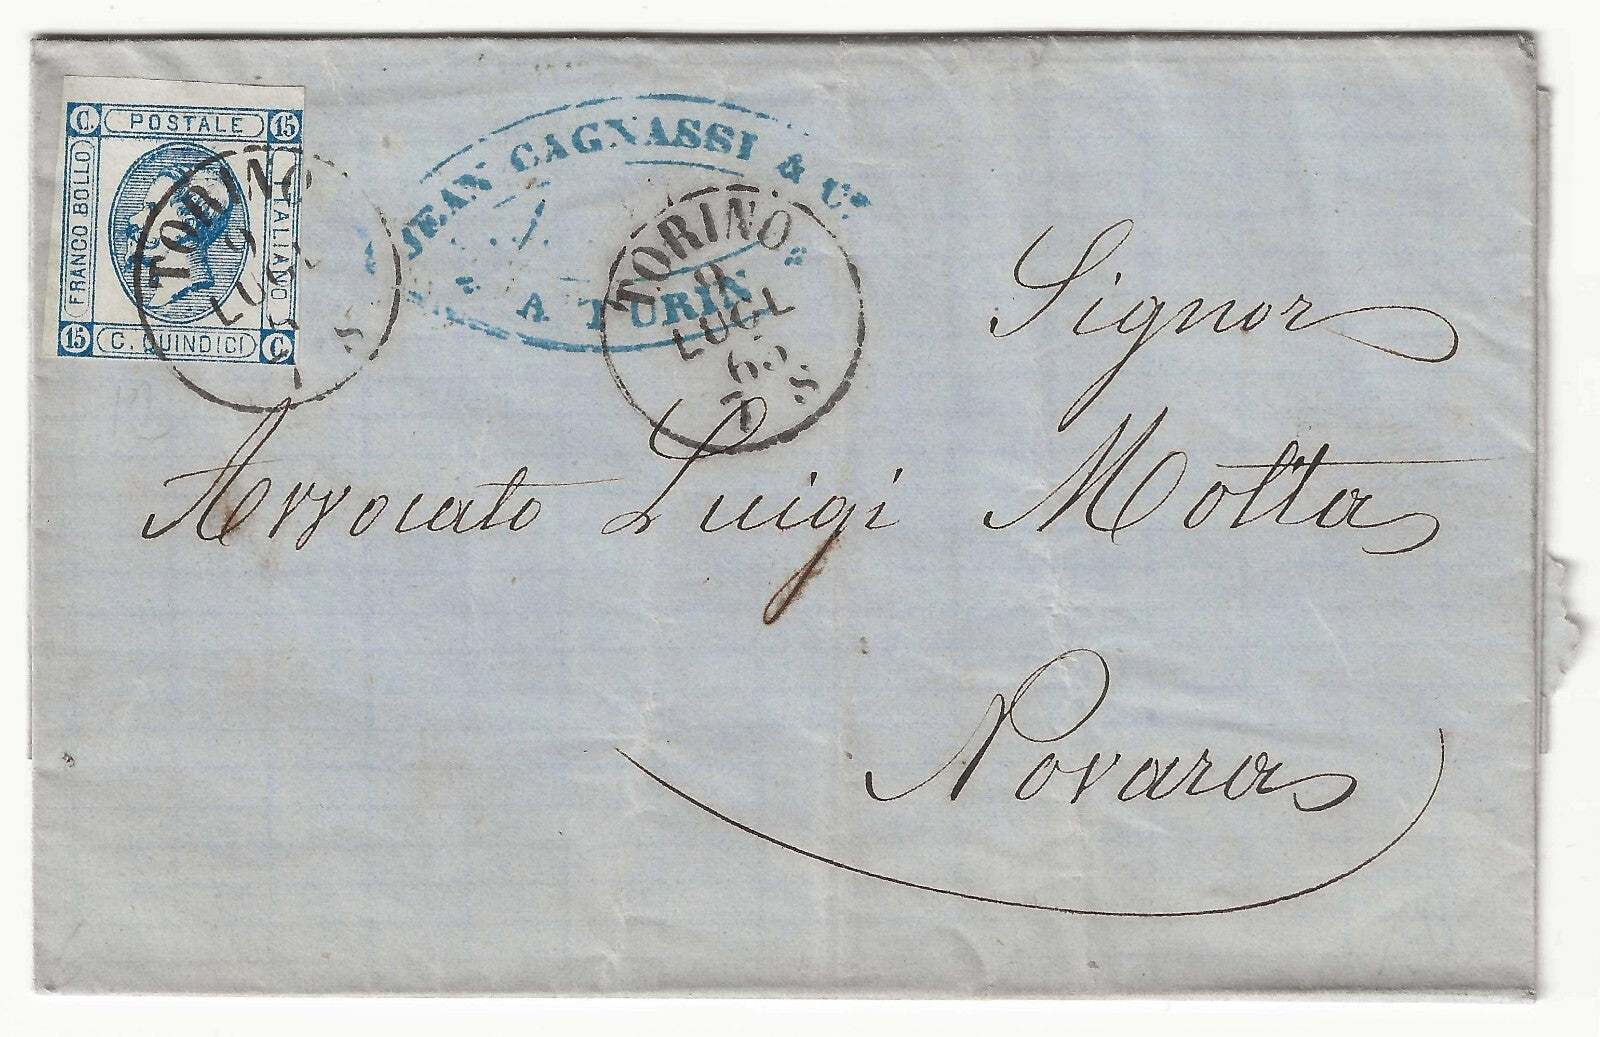 C. POSTALE 15
FRANCO BOLLO
ITALIANO
15 C. QUINDICI C.
TORINO
9
LUG
S
JEAN CAGNASSI & Cie
A TURIN
TORINO
9
LUGL
63
7 S
Signor
Avvocato Luigi Motta
Novara